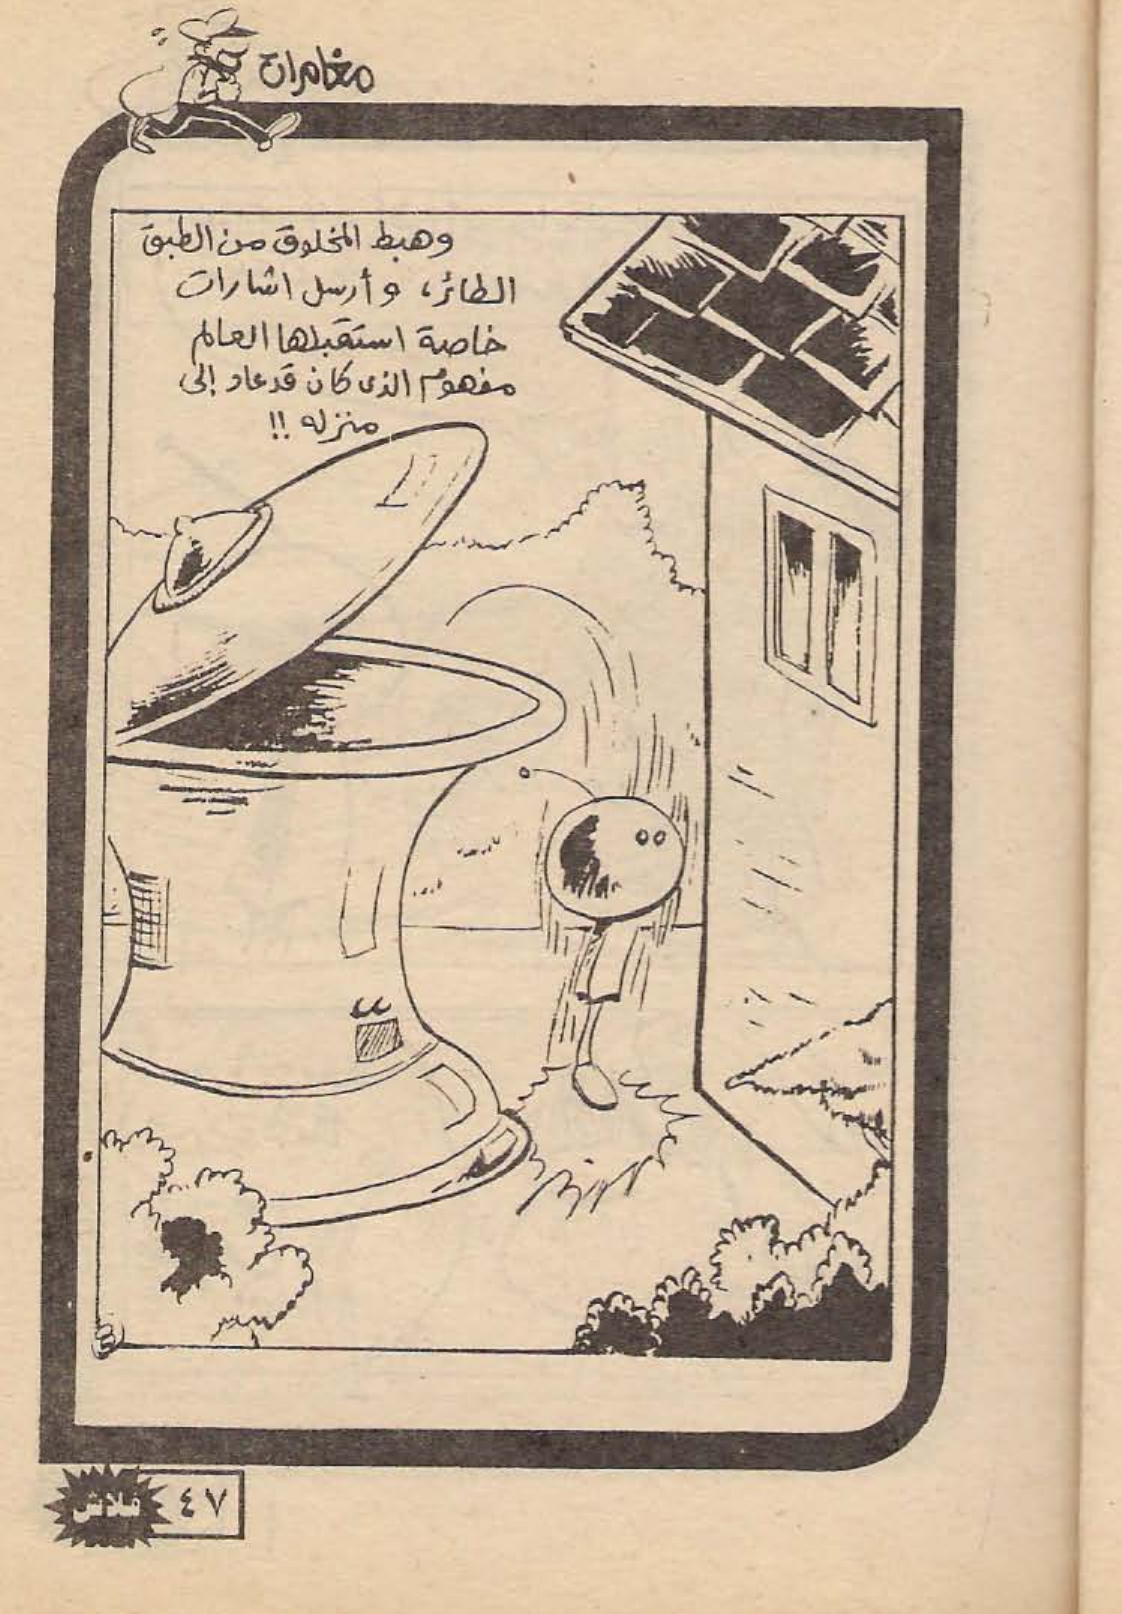 مغامرات
وهبط المخلوق من الطبق
الطائر، وأرسل اشارات
خاصة استقبلها العالم
مفهوم الذى كان قد عاد إلى
منزله !!
فلاش ٤٧